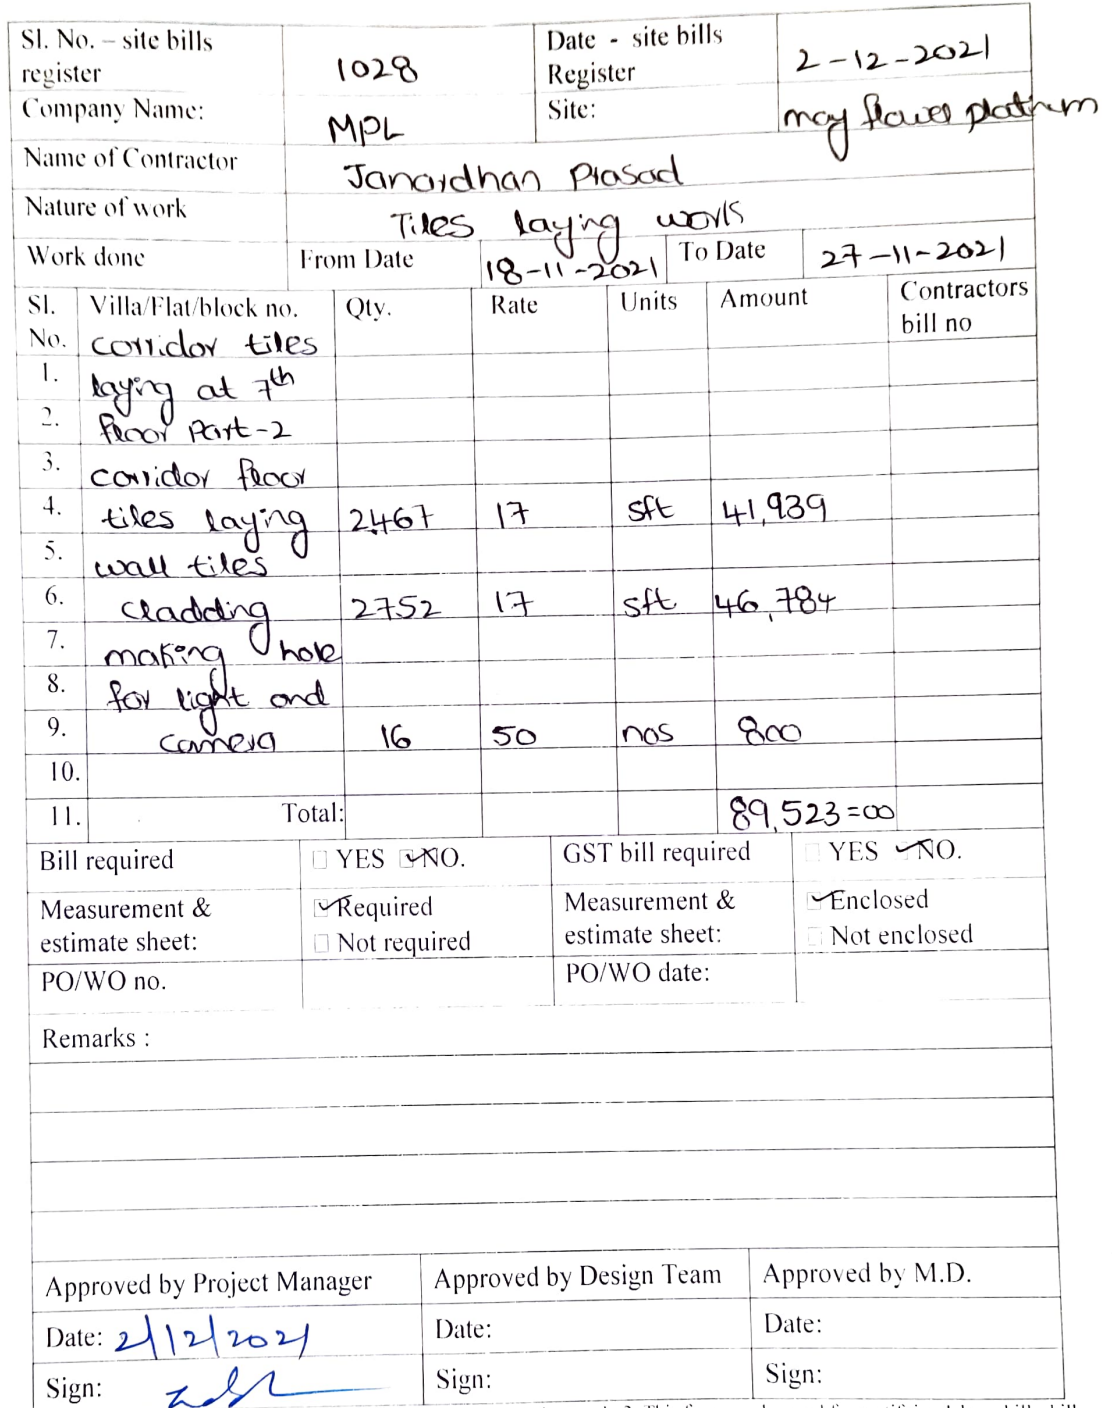 Sl. No. – site bills register 1028 Date - site bills Register 2-12-2021
Company Name: MPL Site: may flower platinum
Name of Contractor Janardhan Prasad
Nature of work Tiles laying work
Work done From Date 18-11-2021 To Date 27-11-2021
Sl. No. Villa/Flat/block no. Qty. Rate Units Amount Contractors bill no
corridor tiles
1. laying at 7th
2. floor Part-2
3. corridor floor
4. tiles laying 2467 17 sft 41,939
5. wall tiles
6. cladding 2752 17 sft 46,784
7. making hole
8. for light and
9. camera 16 50 nos 800
10.
11. Total: 89,523=00
Bill required YES NO. GST bill required YES NO.
Measurement & estimate sheet: Required Not required Measurement & estimate sheet: Enclosed Not enclosed
PO/WO no. PO/WO date:
Remarks :
Approved by Project Manager Approved by Design Team Approved by M.D.
Date: 2/12/2021 Date: Date:
Sign: Sign: Sign: